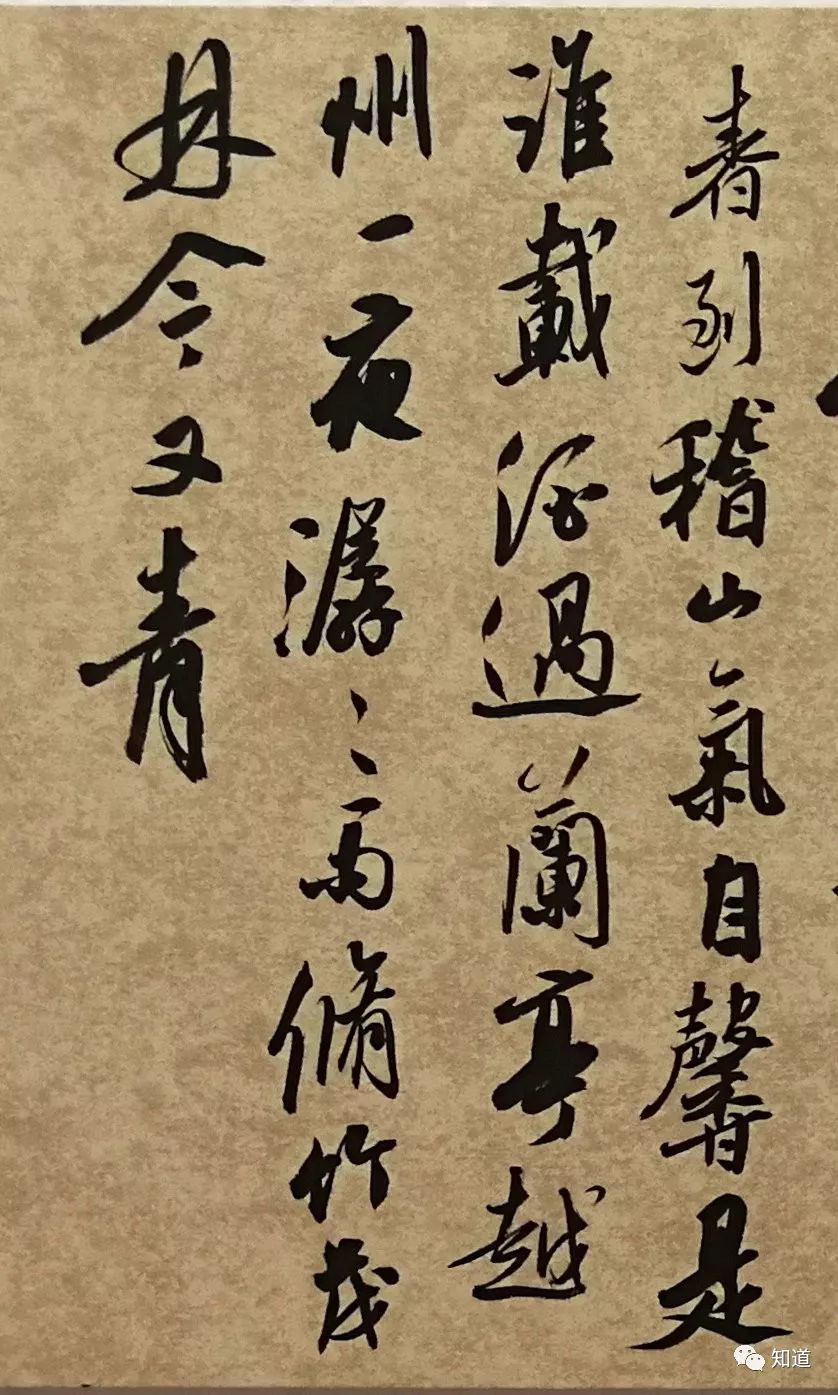 春到稽山氣自馨是
誰載酒過蘭亭越
州一夜潺〻雨脩竹茂
林今又青
知道